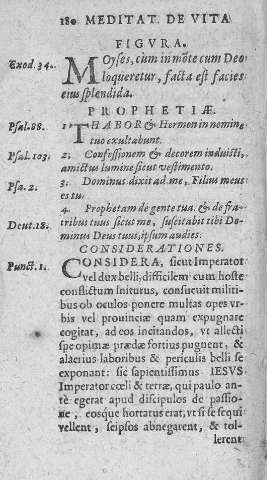 180 MEDITAT. DE VITA
FIGVRA.
Exod. 34. MOyses, cum in mõte cum Deo
loqueretur, facta est facies
eius splendida.
PROPHETIÆ.
Psal. 88. 1. THABOR & Hermon in nomine
tuo exultabunt.
Psal. 103. 2. Confessionem & decorem induisti,
amictus lumine sicut vestimento.
Psa. 2. 3. Dominus dixit ad me, Filius meus
es tu.
4. Prophetam de gente tua & de fra-
Deut. 18. tribus tuus sicut me, suscitabit tibi Do-
minus Deus tuus, ipsum audies.
CONSIDERATIONES.
Punct. 1. CONSIDERA, sicut Imperator
vel dux belli, difficilem cum hoste
conflictum initurus, consueuit militi-
bus ob oculos ponere multas opes vr-
bis vel prouinciæ quam expugnare
cogitat, ad eos incitandos, vt allecti
spe opimæ prædæ fortius pugnent, &
alacrius laboribus & periculis belli se
exponant: sic sapientissimus IESVS
Imperator cœli & terræ, qui paulo an-
tè egerat apud discipulos de passio-
ne, eosque hortatus erat, vt si se sequi
vellent, seipsos abnegarent, & tol-
lerent